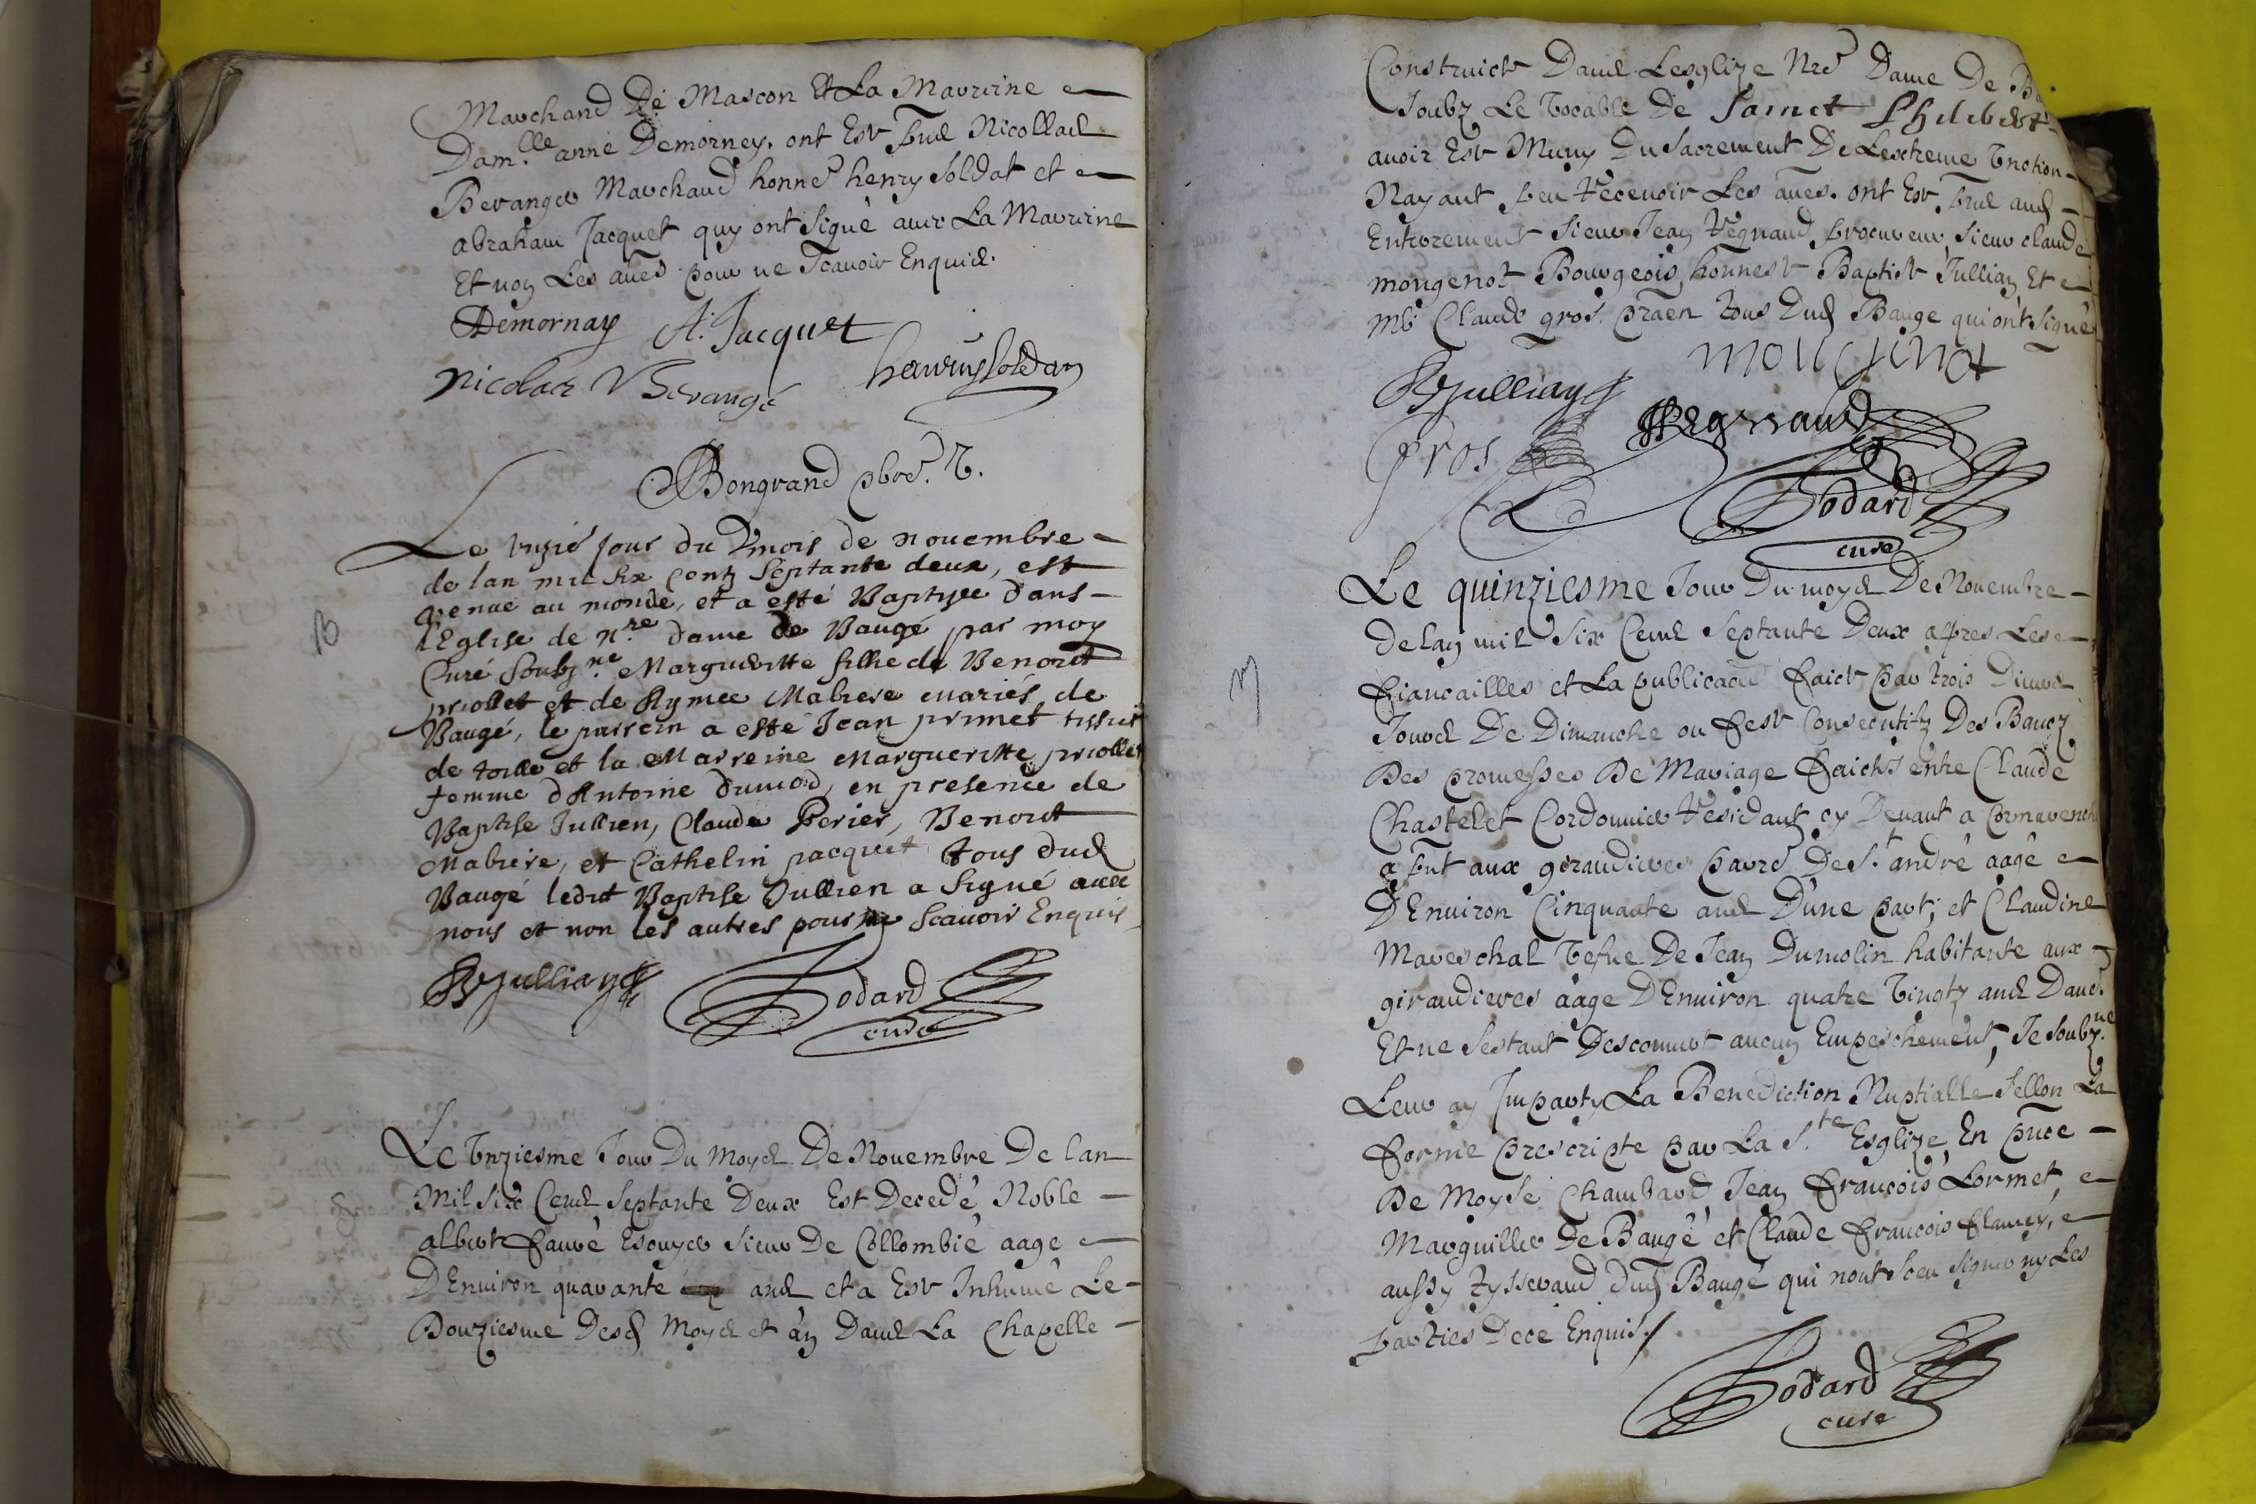 Marchand De Mascon Et La Marrine
Dam.lle anne Demorney. ont Este pnts Nicollas
Beranger Marchand honne henry soldat et
abraham Jacquet quy ont signé avec La Marrine
Et non Les aues pour ne scauoir Enquis.
Demornay A. Jacquet
Nicolas Berangé henry soldan
Bongrand pbre. V.
Le unzie jour du mois de nouembre
de lan mil six cents septante deux, est
venue au monde, et a esté Baptisee dans
l'Eglise de nre dame de Baugé par moy
Curé soubz.ne Margueritte fille de Benoit
priollet et de Aymee Mabiere mariés de
Baugé, le parrein a esté Jean primet tissier
de toille et la Marreine Margueritte priollet
femme d'Antoine Dumod, en presence de
Baptise Jullien, Claude Perier, Benoist
Mabiere, et Cathelin pacquet tous dud
Baugé ledit Baptise Jullien a signé auec
nous et non les autres pour ne scauoir Enquis
B Jullian
Godard
curé
B
Le Vnziesme Jour Du Moys De Nouembre De lan
Mil six Cens septante Deux Est Decedé Noble
albert Fauré Escuyer sieur De Collombié aage
D'Enuiron quarante ans et a Este Inhumé Le
Douziesme Desd Moys et an Dans La Chapelle
Construicte Dans Lesglize Nre Dame De
soubz Le Vocable De sainct Philibert
auoir Este Muny Du sacrement De Lextreme Vnction
Nayant peu Recenoir Les aues. ont Este pnts aud
Enterement sieur Jean Regnaud procureur, sieur claude
mongenot Bourgeois, honneste Baptiste Jullian Et
Mre Claude gros praen tous Dud Bauge qui ont signé
mongenot
B Jullian
Regnaud
gros
Godard
curé
Le quinziesme Jour Du moys De Nouembre
De lan mil six Cens septante Deux apres Les
Fiancailles et La publicaon Faicte par trois Diuers
Jours De Dimanche ou Feste Consecutifz Des Bancz
Des promesses De Mariage Faicts entre Claude
Chastelet Cordonnier Residant cy Deuant a
a pnt aux giraudieres parre De St. andré aagé
D'Enuiron Cinquante ans D'une part; et Claudine
Mareschal Vefue De Jean Dumolin habitante aux
giraudieres aage D'Enuiron quatre Vingtz ans Daue.
Et ne sestant Descouuert aucun Empeschement, Je soubz.ne
Leur ay Imparty La Benediction Nuptialle sellon La
Forme prescripte par La S.te Esglize En pnce
De Moyse Chambard, Jean François Lormet,
Marguillier De Baugé et Claude François Flamey,
aussy Tysserand Dud Baugé qui nont sceu signer ny Les
parties Dece Enquis
Godard
curé
M